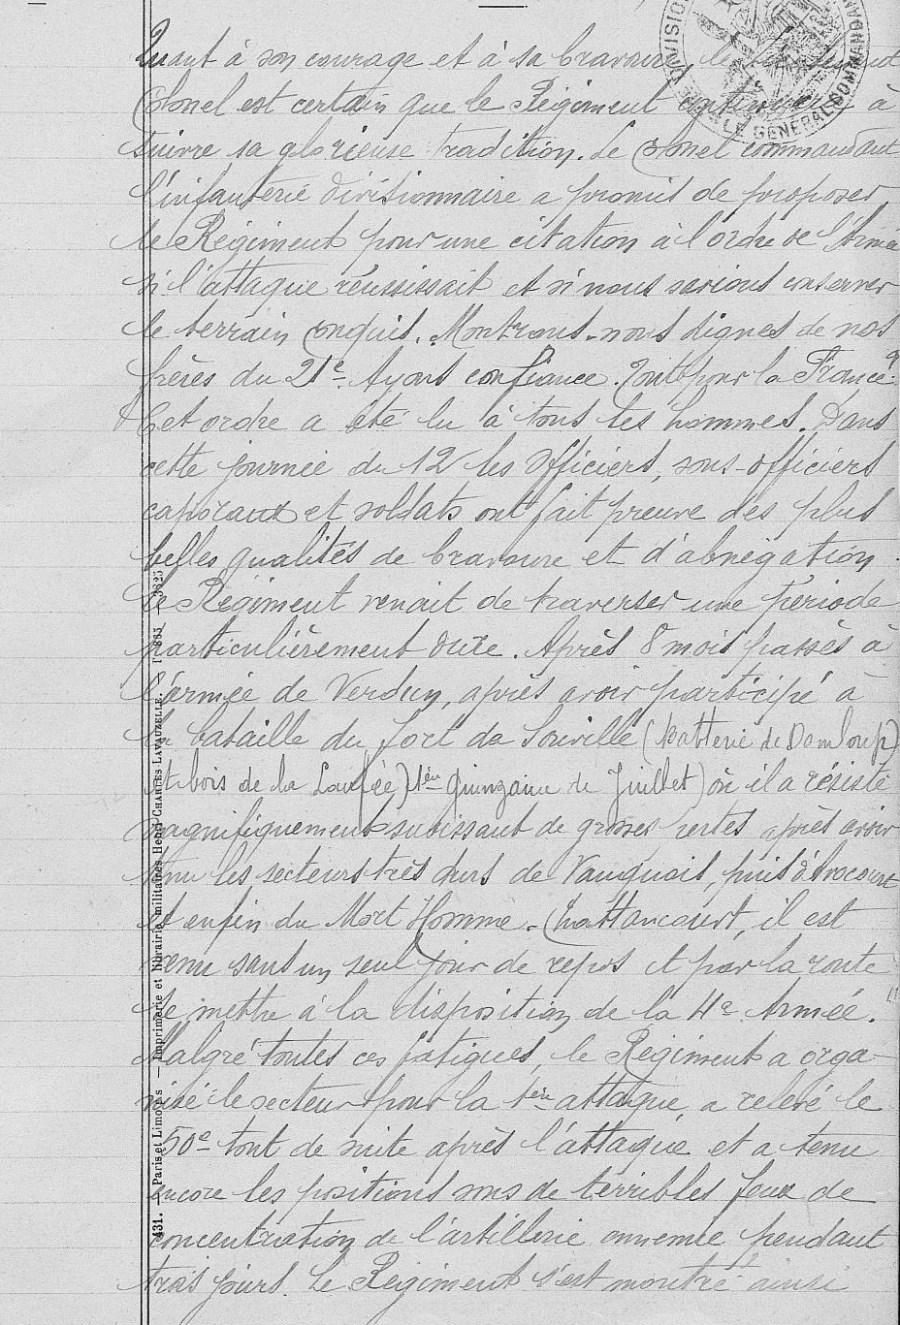 Quant à son courage et à sa bravoure, le
Colonel est certain que le Régiment continuera à
suivre sa glorieuse tradition. Le Colonel commandant
l'infanterie divisionnaire a promis de proposer
le Régiment pour une citation à l'ordre de l'Armée
si l'attaque réussissait et si nous savions conserver
le terrain conquis. Montrons-nous dignes de nos
frères du 21e. Ayons confiance. Tout pour la France."
Cet ordre a été lu à tous les hommes. Dans
cette journée du 12 les officiers, sous-officiers
caporaux et soldats ont fait preuve des plus
belles qualités de bravoure et d'abnégation.
Le Régiment venait de traverser une période
particulièrement dure. Après 8 mois passés à
l'armée de Verdun, après avoir participé à
la bataille du fort de Souville (batterie de Damloup)
et bois de la Laufée) 1ère quinzaine de Juillet) où il a résisté
magnifiquement subissant de grosses pertes après avoir
tenu les secteurs très durs de Vauquois, puis d'Avocourt
et enfin du Mort Homme. Chattancourt, il est
venu sans un seul jour de repos et par la route
se mettre à la disposition de la 4e Armée.
Malgré toutes ces fatigues, le Régiment a orga-
nisé le secteur pour la 1ère attaque, a relevé le
50e tout de suite après l'attaque et a tenu
encore les positions sous de terribles feux de
concentration de l'artillerie ennemie pendant
trois jours. Le Régiment s'est montré ainsi
431. — Paris et Limoges — Imprimerie et librairie militaires Henri CHARLES-LAVAUZELLE.
LE GÉNÉRAL COMMANDANT
DIVISION